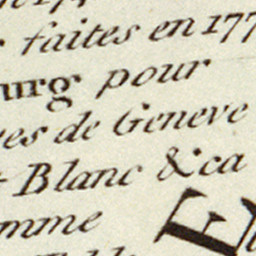 faites en 177
urg pour
es de Geneve
Blanc &ca
mme
E